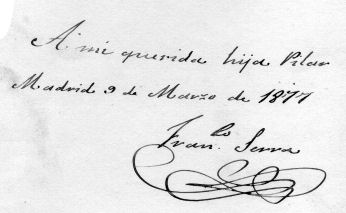 A mi querida hija Pilar
Madrid 9 de Marzo de 1877
Fran.co Serra